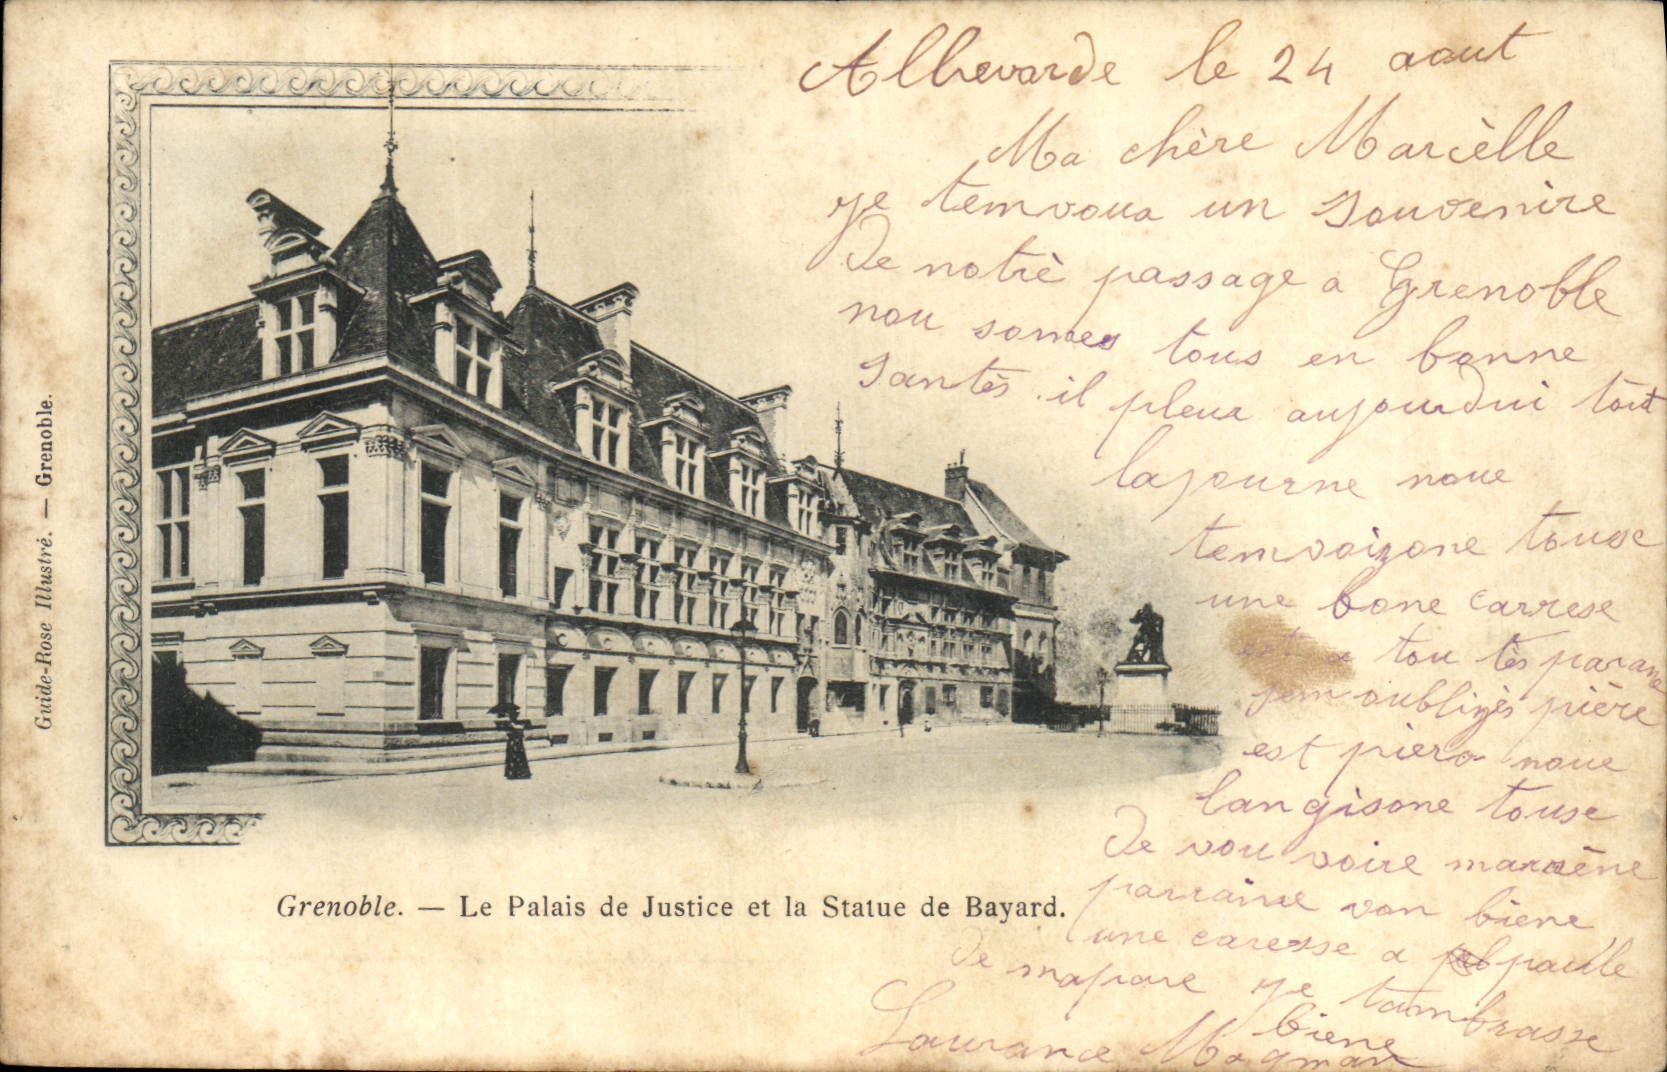 Allevarde le 24 aout
Ma chère Marcèlle
je temvoua un souvenire
de notrè passage a Grenoble
nou somes tous en bonne
santès. il pleux aujourdui tout
lajourne noue
temvoizone touse
une bone carrese
est a tou tès parans
jem oublizès pière
est piero noue
langisone touse
de vou voire marène
parraine von biene
une caresse a paule
de mapare je tambrasse
biene
Laurance Magman
Grenoble. — Le Palais de Justice et la Statue de Bayard.
Guide-Rose Illustré. — Grenoble.